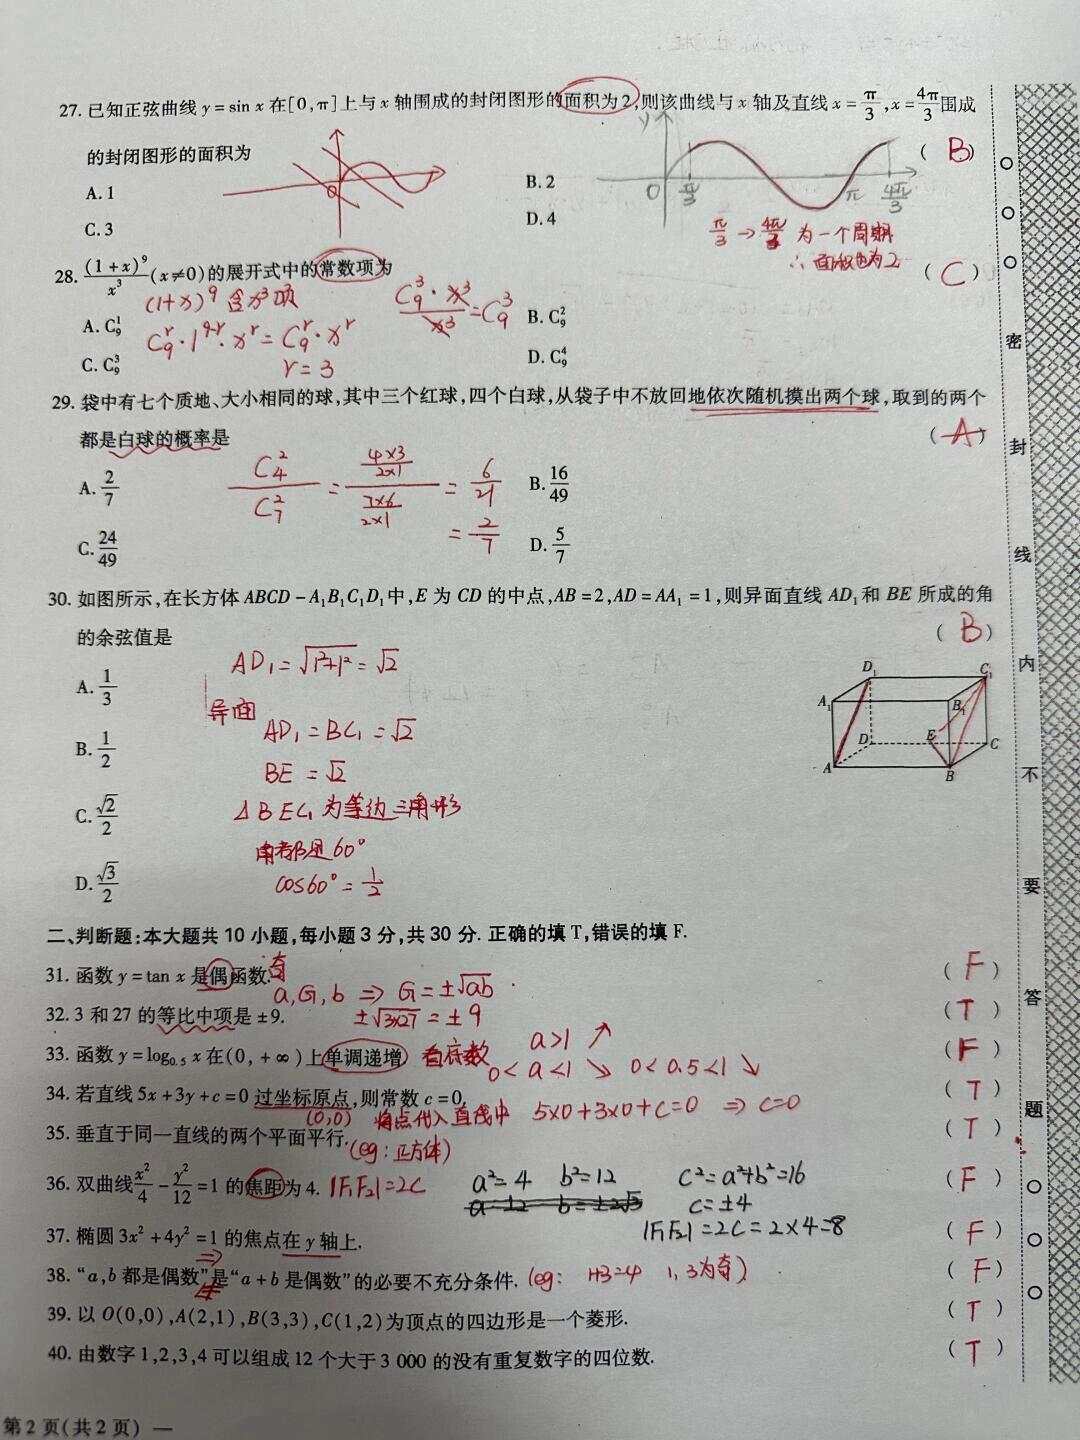 27. 已知正弦曲线 y = sin x 在[0,π]上与 x 轴围成的封闭图形的面积为2,则该曲线与 x 轴及直线 x = π/3, x = 4π/3 围成
的封闭图形的面积为 ( B )
A. 1 B. 2
C. 3 D. 4
O y O π/3 π 4π/3
π/3 → 4π/3 为一个周期
∴ 面积也为2
28. (1+x)^9/x^3 (x≠0)的展开式中的常数项为 ( C )
(1+x)^9 含x^3项 C_9^3·x^3/x^3 = C_9^3
A. C_9^1 B. C_9^2
C_9^r·1^{9-r}·x^r = C_9^r·x^r
C. C_9^3 D. C_9^4
r = 3
29. 袋中有七个质地、大小相同的球,其中三个红球,四个白球,从袋子中不放回地依次随机摸出两个球,取到的两个
都是白球的概率是 ( A )
A. 2/7 B. 16/49
C_4^2/C_7^2 = (4×3/2×1)/(7×6/2×1) = 6/21
= 2/7
C. 24/49 D. 5/7
30. 如图所示,在长方体 ABCD - A₁B₁C₁D₁中,E 为 CD 的中点,AB = 2,AD = AA₁ = 1,则异面直线 AD₁和 BE 所成的角
的余弦值是 ( B )
A. 1/3
B. 1/2
C. √2/2
D. √3/2
AD₁ = √(1²+1²) = √2
异面
AD₁ = BC₁ = √2
BE = √2
△BEC₁为等边三角形
角都是60°
cos60° = 1/2
D₁ C₁
A₁ B₁
D E C
A B
二、判断题:本大题共 10 小题,每小题 3 分,共 30 分. 正确的填 T,错误的填 F.
31. 函数 y = tan x 是偶函数. 奇 ( F )
a,G,b ⇒ G = ±√ab
32. 3 和 27 的等比中项是 ±9. ±√3×27 = ±9 ( T )
33. 函数 y = log₀.₅ x 在(0, +∞)上单调递增 看底数 a>1 ↗ ( F )
0<a<1 ↘ 0<0.5<1 ↘
34. 若直线 5x + 3y + c = 0 过坐标原点,则常数 c = 0. ( T )
(0,0) 将点代入直线中 5×0+3×0+c=0 ⇒ c=0
35. 垂直于同一直线的两个平面平行. (eg:正方体) ( T )
36. 双曲线 x²/4 - y²/12 = 1 的焦距为 4. |F₁F₂|=2C a²=4 b²=12 c²=a²+b²=16 ( F )
a=±2 b=±2√3 c=±4
|F₁F₂|=2c=2×4=8
37. 椭圆 3x² + 4y² = 1 的焦点在 y 轴上. ( F )
38. “a,b 都是偶数”是“a + b 是偶数”的必要不充分条件. (eg: 1+3=4 1,3为奇) ( F )
39. 以 O(0,0),A(2,1),B(3,3),C(1,2)为顶点的四边形是一个菱形. ( T )
40. 由数字 1,2,3,4 可以组成 12 个大于 3 000 的没有重复数字的四位数. ( T )
第 2 页(共 2 页) —
密
封
线
内
不
要
答
题